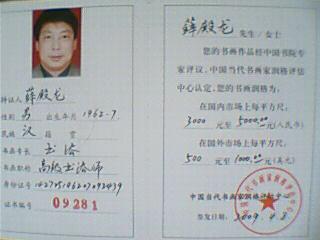 持证人 薛殿龙
性别 男 出生年月 1962.7
民族 汉 籍贯
书画专长 书法
书画职称 高级书法师
身份证号
证书编号 09281
薛殿龙 先生/女士
您的书画作品经中国书院专
家评议,中国当代书画家润格评估
中心认定,您的书画润格为
在国内市场上每平方尺:
3000 元至 5000.00 元(人民币)
在国外市场上每平方尺:
500 元至 1000.00 元(美元)
中国当代书画家润格评估中心
签发日期: 2009.4.8